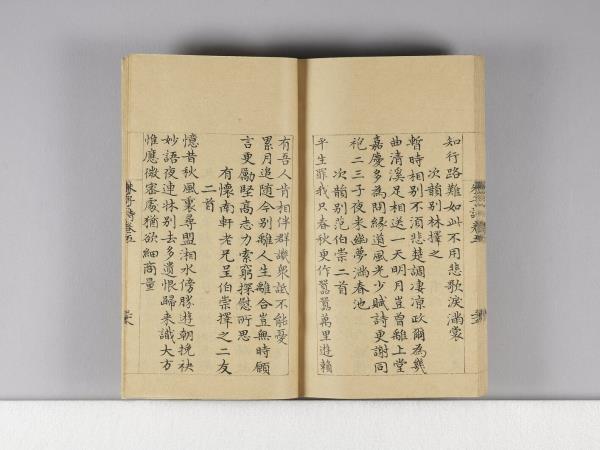 知行路難如此不用悲歌淚滿裳
次韻別林擇之
暫時相別不須悲楚調凄凉政爾為幾
曲清溪足相送一天明月豈曾離上堂
嘉慶多為問緣道風光少賦詩更謝同
袍二三子夜来幽夢滿春池
次韻別范伯崇二首
平生罪我只春秋更作囂囂萬里遊賴
有吾人肯相伴群譏衆詆不能憂
累月追随今別離人生離合豈無時願
言更勵堅高志力索窮探慰所思
有懷南軒老兄呈伯崇擇之二友
二首
憶昔秋風裏尋盟湘水傍勝遊朝挽袂
妙語夜連牀別去多遺恨歸来識大方
惟應微密處猶欲細商量